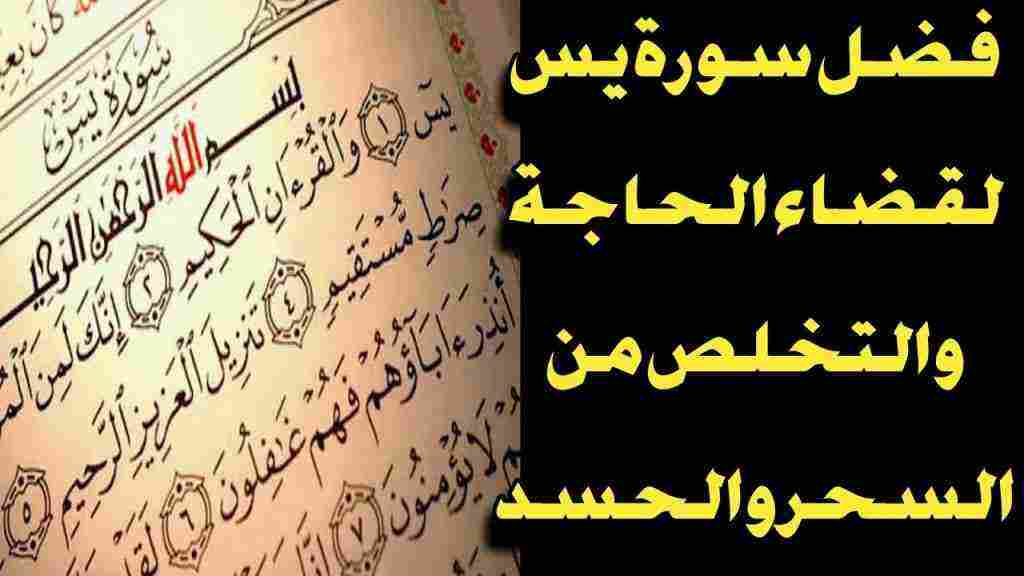 فضل سورة يس
لقضاء الحاجة
والتخلص من
السحر والحسد
كَانَ
سُورَةُ يسٓ
بِسْمِ ٱللَّهِ ٱلرَّحْمَٰنِ ٱلرَّحِيمِ
يسٓ ١ وَٱلْقُرْءَانِ ٱلْحَكِيمِ ٢ إِنَّكَ لَمِنَ
صِرَٰطٍ مُّسْتَقِيمٍ ٤ تَنزِيلَ ٱلْعَزِيزِ ٱلرَّحِيمِ ٥
أُنذِرَ ءَابَآؤُهُمْ فَهُمْ غَٰفِلُونَ ٦ لَقَدْ
لَا يُؤْمِنُونَ ٧ إِنَّا